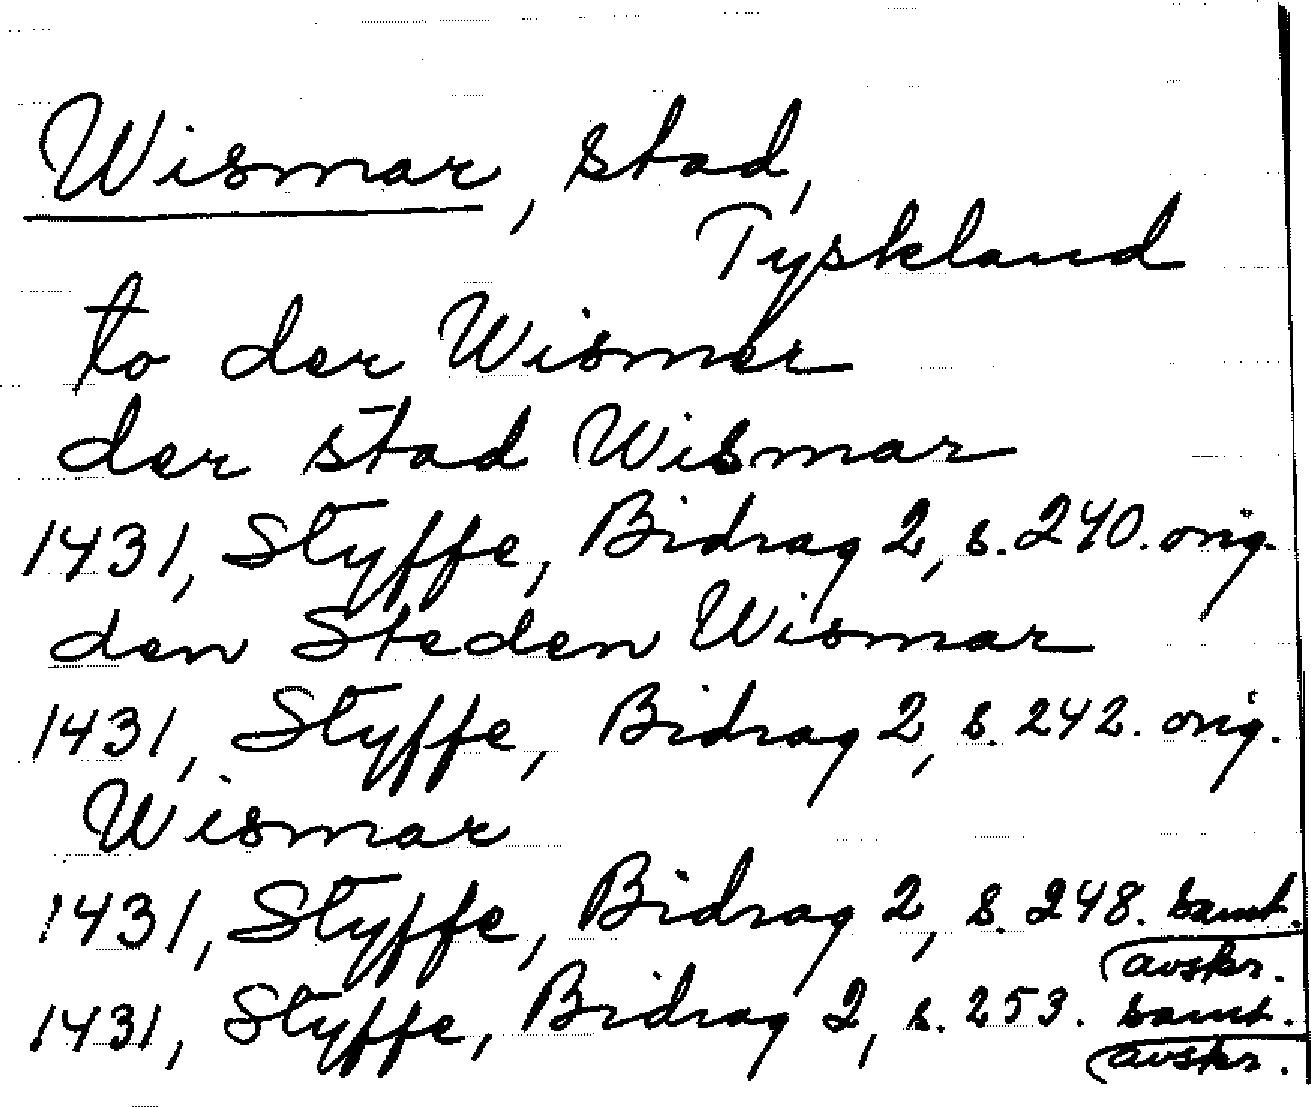 Wismar, stad,
Tyskland
to der Wismer
der stad Wismar
1431, Styffe, Bidrag 2, s. 240. orig.
den Steden Wismar
1431, Styffe, Bidrag 2, s. 242. orig.
Wismar
1431, Styffe, Bidrag 2, s. 248. samt.
avskr.
1431, Styffe, Bidrag 2, s. 253. samt.
avskr.